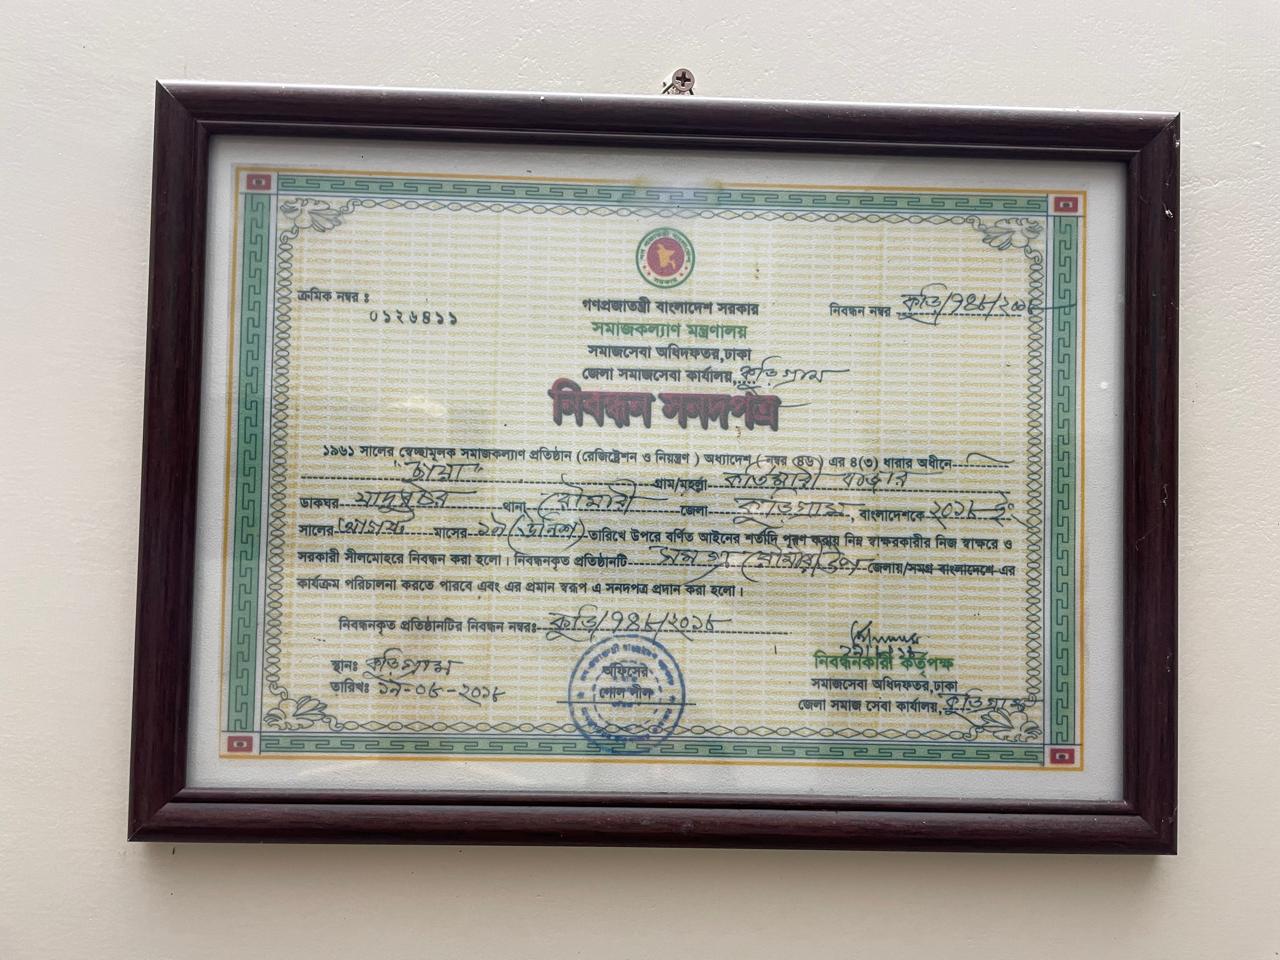 ক্রমিক নম্বর ঃ
০১২৬৪১১
গণপ্রজাতন্ত্রী বাংলাদেশ সরকার
নিবন্ধন নম্বর কুড়ি/৭৪৮/২০১৮
সমাজকল্যাণ মন্ত্রণালয়
সমাজসেবা অধিদফতর,ঢাকা
জেলা সমাজসেবা কার্যালয়, কুড়িগ্রাম
নিবন্ধন সনদপত্র
১৯৬১ সালের স্বেচ্ছামূলক সমাজকল্যাণ প্রতিষ্ঠান (রেজিষ্ট্রেশন ও নিয়ন্ত্রণ) অধ্যাদেশ (নম্বর ৪৬) এর ৪(৩) ধারার অধীনে
"ছায়া" গ্রাম/মহল্লা কর্তিমারী বাজার
ডাকঘর যাদুরচর থানা রৌমারী জেলা কুড়িগ্রাম, বাংলাদেশকে ২০১৮ ইং
সালের আগষ্ট মাসের ১৯ (উনিশ) তারিখে উপরে বর্ণিত আইনের শর্তাদি পূরণ করায় নিম্ন স্বাক্ষরকারীর নিজ স্বাক্ষরে ও
সরকারী সীলমোহরে নিবন্ধন করা হলো। নিবন্ধনকৃত প্রতিষ্ঠানটি সমগ্র রৌমারী জেলায়/সমগ্র বাংলাদেশে এর
কার্যক্রম পরিচালনা করতে পারবে এবং এর প্রমান স্বরূপ এ সনদপত্র প্রদান করা হলো।
নিবন্ধনকৃত প্রতিষ্ঠানটির নিবন্ধন নম্বরঃ কুড়ি/৭৪৮/২০১৮
স্থানঃ কুড়িগ্রাম
তারিখঃ ১৯-০৮-২০১৮
অফিসের
গোল সীল
নিবন্ধনকারী কর্তৃপক্ষ
সমাজসেবা অধিদফতর,ঢাকা
জেলা সমাজ সেবা কার্যালয়, কুড়িগ্রাম